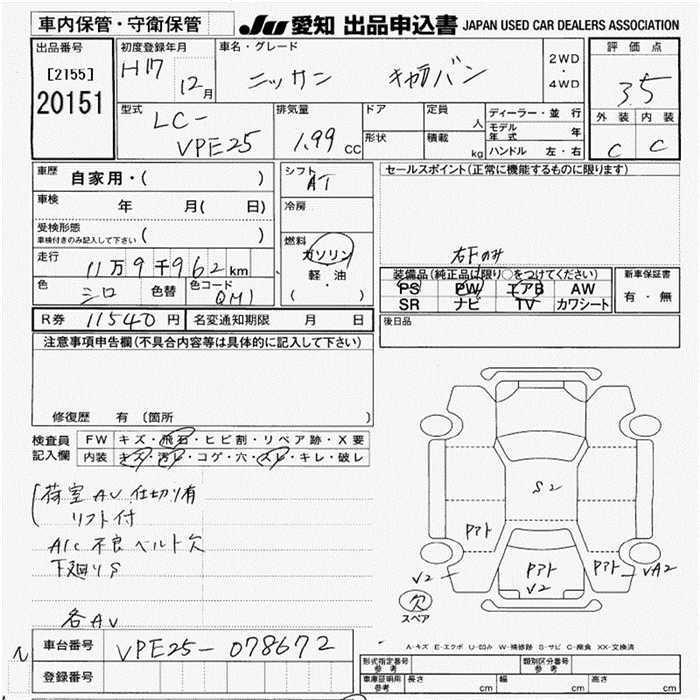 車内保管・守衛保管
JU 愛知 出品申込書 JAPAN USED CAR DEALERS ASSOCIATION
出品番号
[2155]
20151
初度登録年月
H17 12月
車名・グレード
ニッサン キャラバン
2WD
・
4WD
評価点
3.5
外装 内装
C C
型式
LC-
VPE25
排気量
1.99 CC
ドア
形状
定員
人
積載
kg
ディーラー・並行
モデル年式 年
ハンドル 左・右
車歴
自家用・( )
車検
年 月( 日)
受検形態
車検付きのみ記入して下さい ( )
走行
11万9千962km
色
シロ
色替
色コード
QM1
シフト
AT
冷房
燃料
ガソリン
軽油
( ・ )
セールスポイント(正常に機能するものに限ります)
右Fのみ
装備品(純正品は限り○をつけてください)
PS PW エアB AW
SR ナビ TV カワシート
新車保証書
有・無
R券 11540円
名変通知期限 月 日
後日品
注意事項申告欄(不具合内容等は具体的に記入して下さい)
修復歴 有〔箇所
検査員
記入欄
FW キズ・飛石・ヒビ割・リペア跡・X要
内装 キズ・汚レ・コゲ・穴・スレ・キレ・破レ
荷室AV 仕切り有
リフト付
A/C 不良 ベルト欠
下廻りS
各AV
S2
アト
Pアト
V2
Pアト
V2
VA2
欠
スペア
A-キズ E-エクボ U-凹み W-補修跡 S-サビ C-腐食 XX-交換済
車台番号
VPE25-078672
登録番号
形式指定番号
参考
類別区分番号
参考
車庫証明用
参考
長さ cm
幅 cm
高さ cm